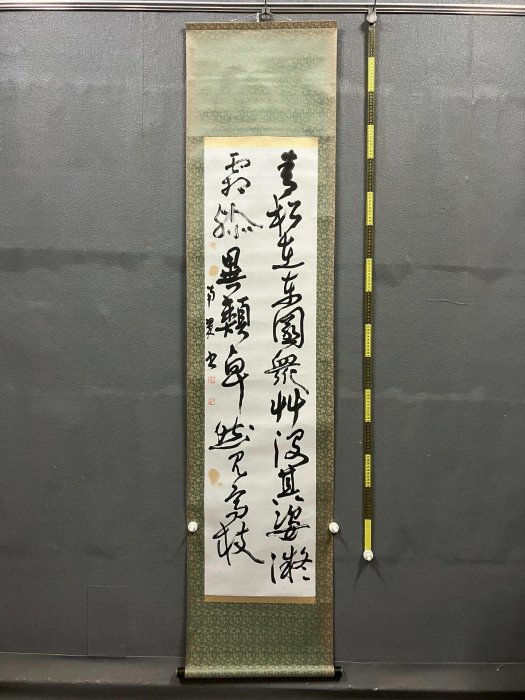 青松在東園衆草没其姿凝
霜殄異類卓然見高枝
書